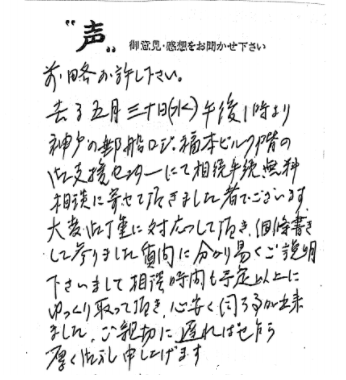 "声" 御意見・感想をお聞かせ下さい
前略お許し下さい。
去る五月三十日(水)午後1時より
神戸の郵船ビル、福本ビル7階の
支援センターにて相続手続無料
相談に寄せて頂きました者でございます。
大変丁重に対応して頂き、個條書き
して参りました質問に分かり易くご説明
下さいまして相談時間も予定以上に
ゆっくり取って頂き、心安く伺う事が出来
ました。ご親切に遅ればせ乍ら
厚く御礼申し上げます